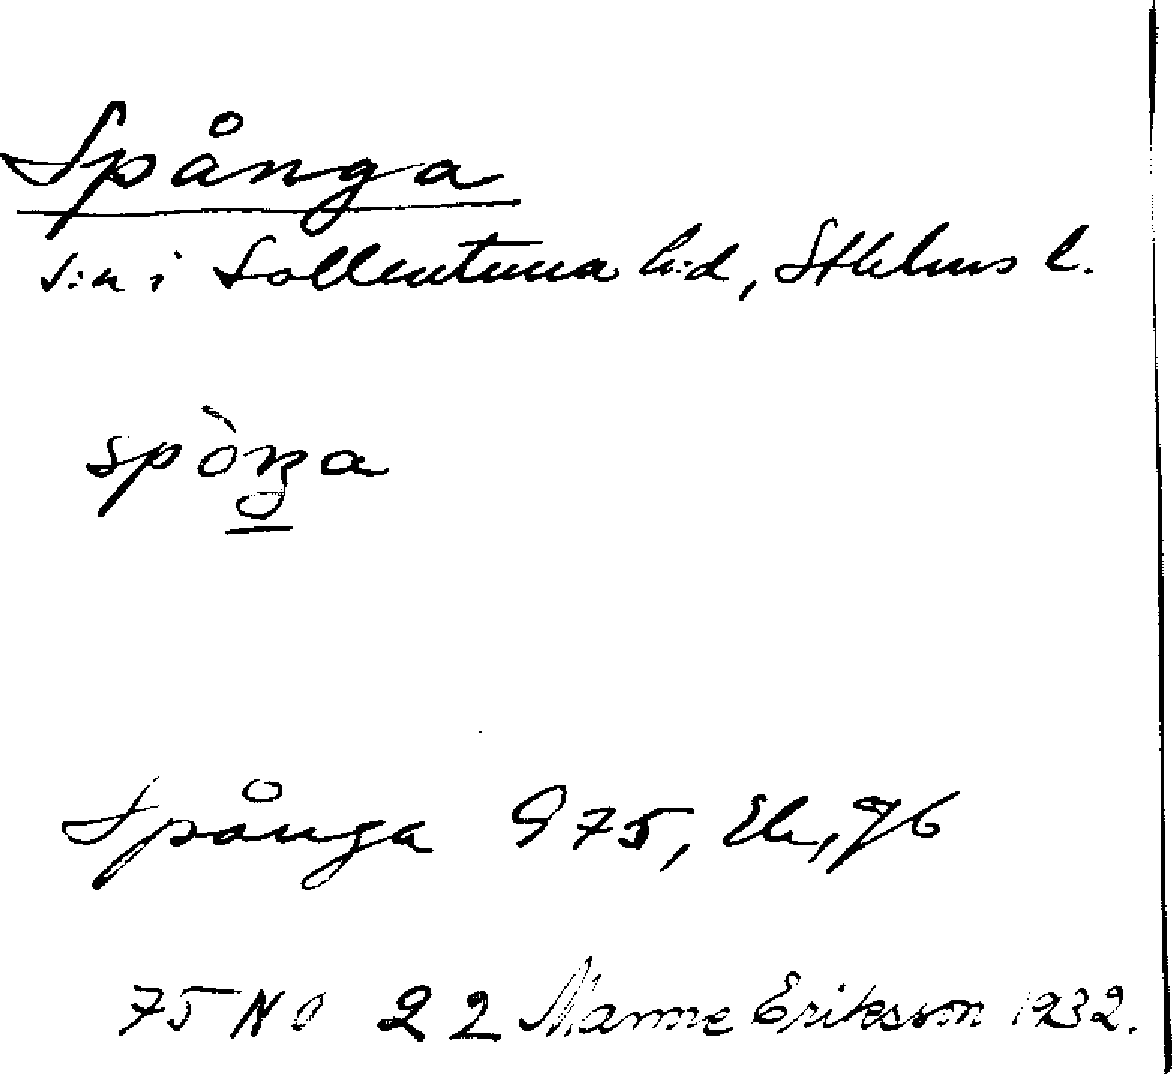 Spånga
s:n i Sollentuna h:d, Sthlms l.
spòŋa
Spånga G 75, Ek,
75 NO 22 Manne Eriksson 1932.